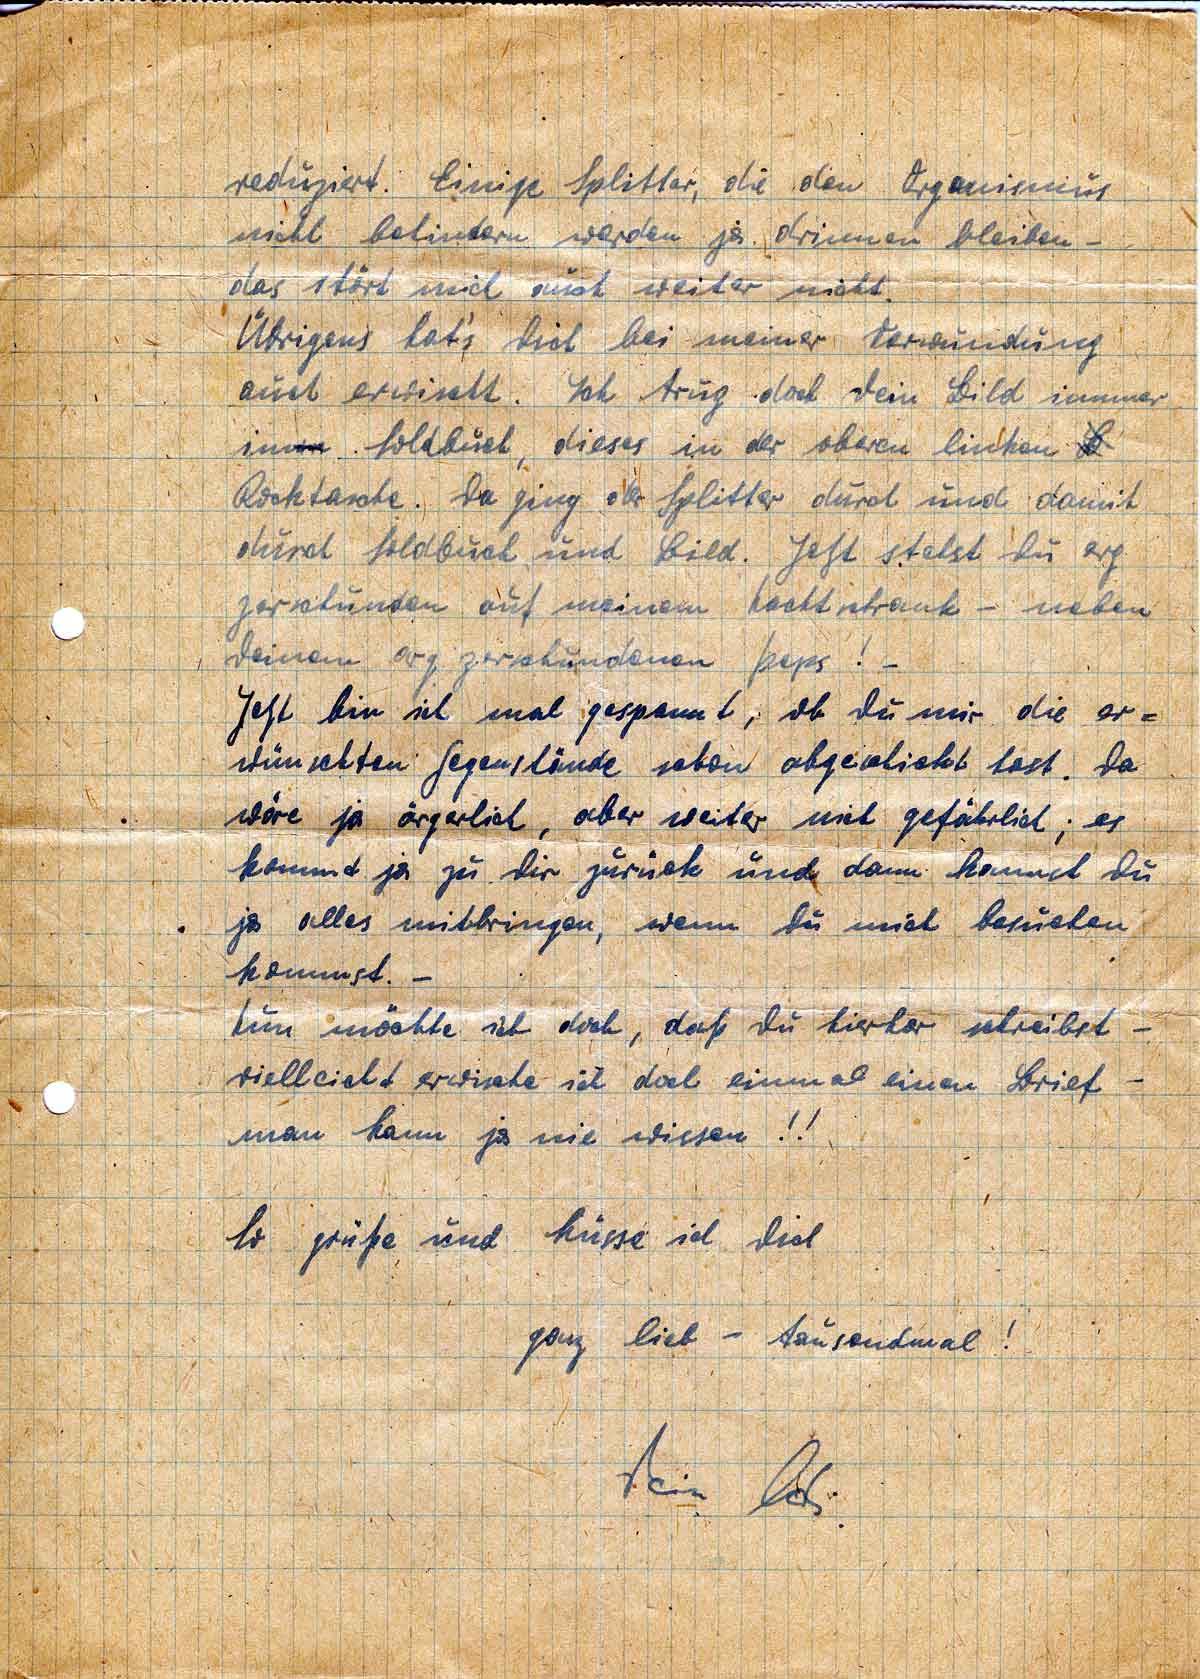 reduziert. Einige Splitter, die den Organismus
nicht behindern werden ja drinnen bleiben –
das stört mich auch weiter nicht.
Übrigens hat's Dich bei meiner Verwundung
auch erwischt. Ich trug doch Dein Bild immer
im Soldbuch, dieses in der oberen linken
Rocktasche. Da ging der Splitter durch und damit
durch Soldbuch und Bild. Jetzt stehst Du arg
zerschunden auf meinem Nachtschrank – neben
Deinem arg zerschundenen Peps! –
Jetzt bin ich mal gespannt, ob Du mir die er=
wünschten Gegenstände schon abgeschickt hast. Da
wäre ja ärgerlich, aber weiter nich gefährlich; es
kommt ja zu Dir zurück und dann kannst Du
ja alles mitbringen, wenn Du mich besuchen
kommst. –
Nun möchte ich doch, daß Du hierher schreibst –
vielleicht erwische ich doch einmal einen Brief –
man kann ja nie wissen!!
So grüße und küsse ich Dich
ganz lieb – tausendmal!
Dein